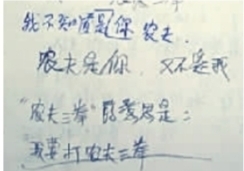 我不知道是你农夫.
农夫是你，又不是我
"农夫三拳"的意思是：
我要打农夫三拳